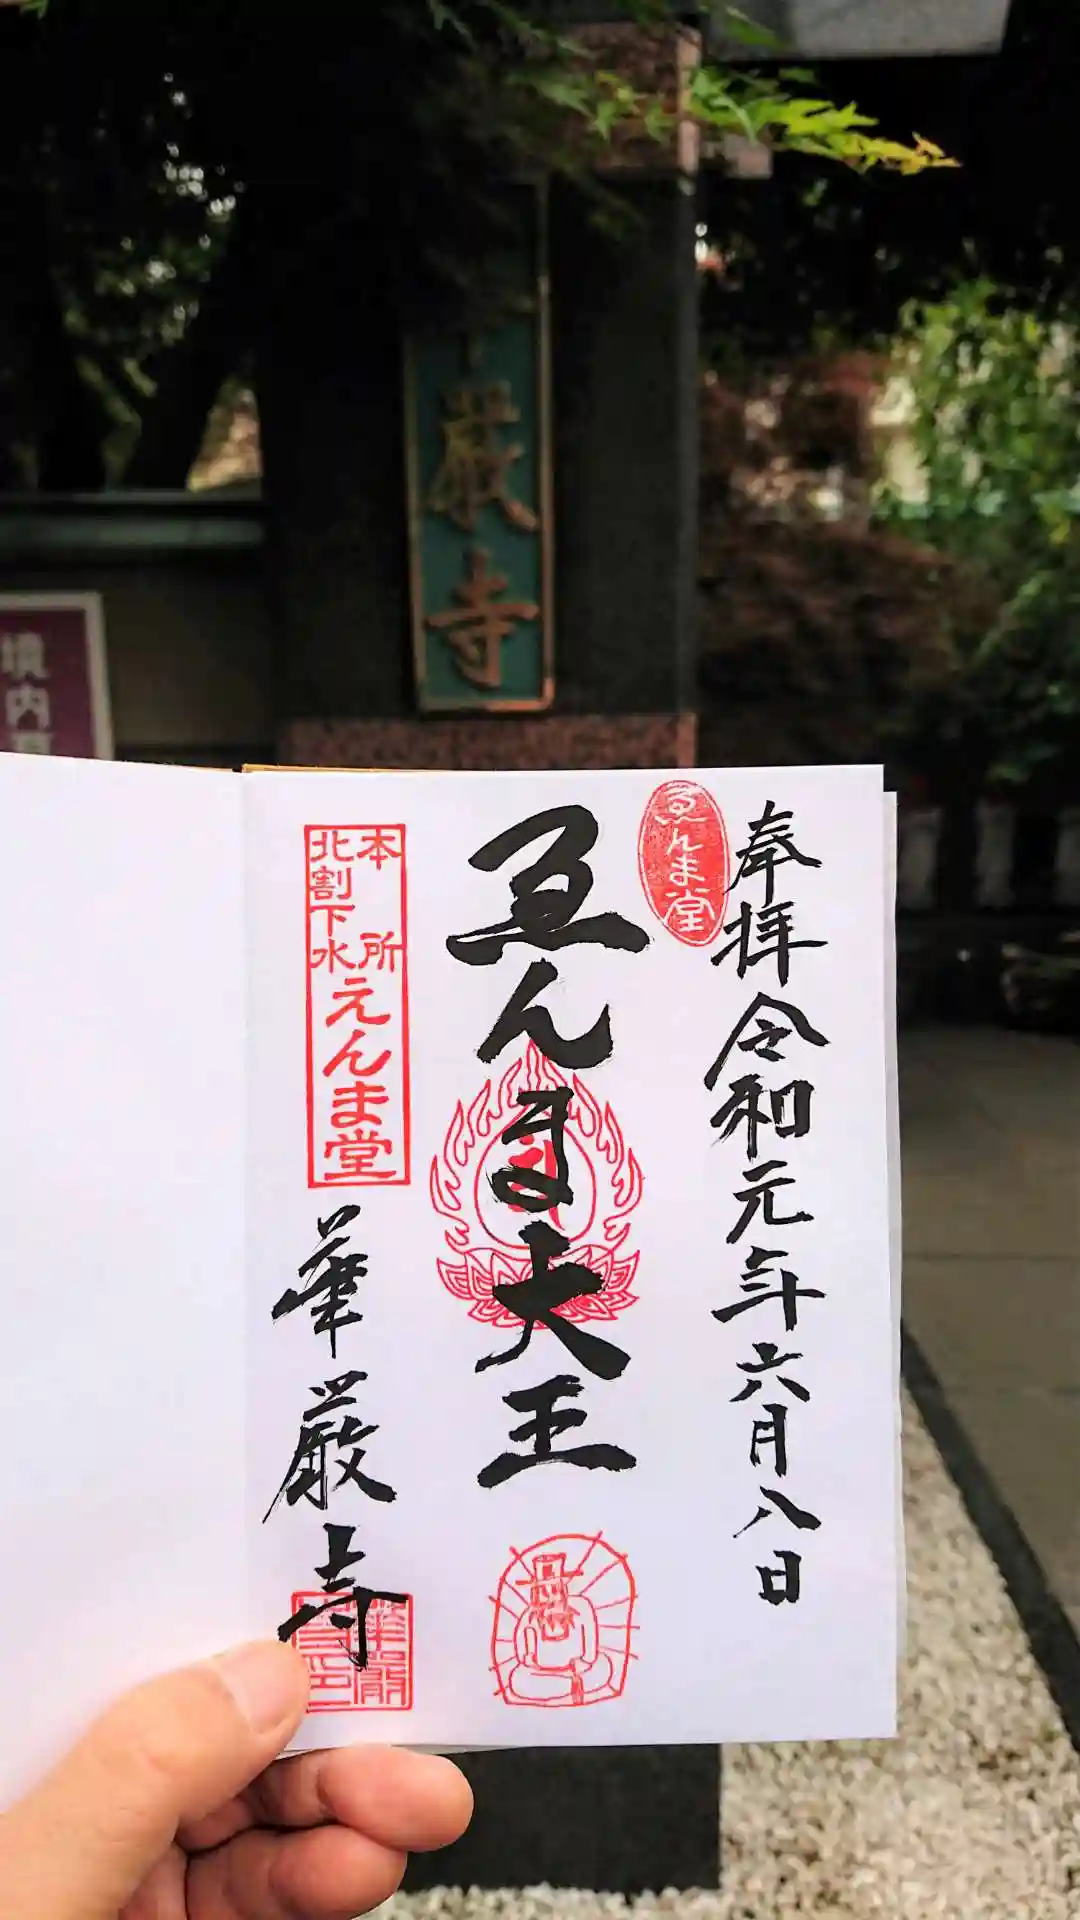 嚴寺
境内
奉拝 令和元年六月八日
ゑんま堂
ゑんま大王
本所
北割下水
えんま堂
華嚴寺
華嚴